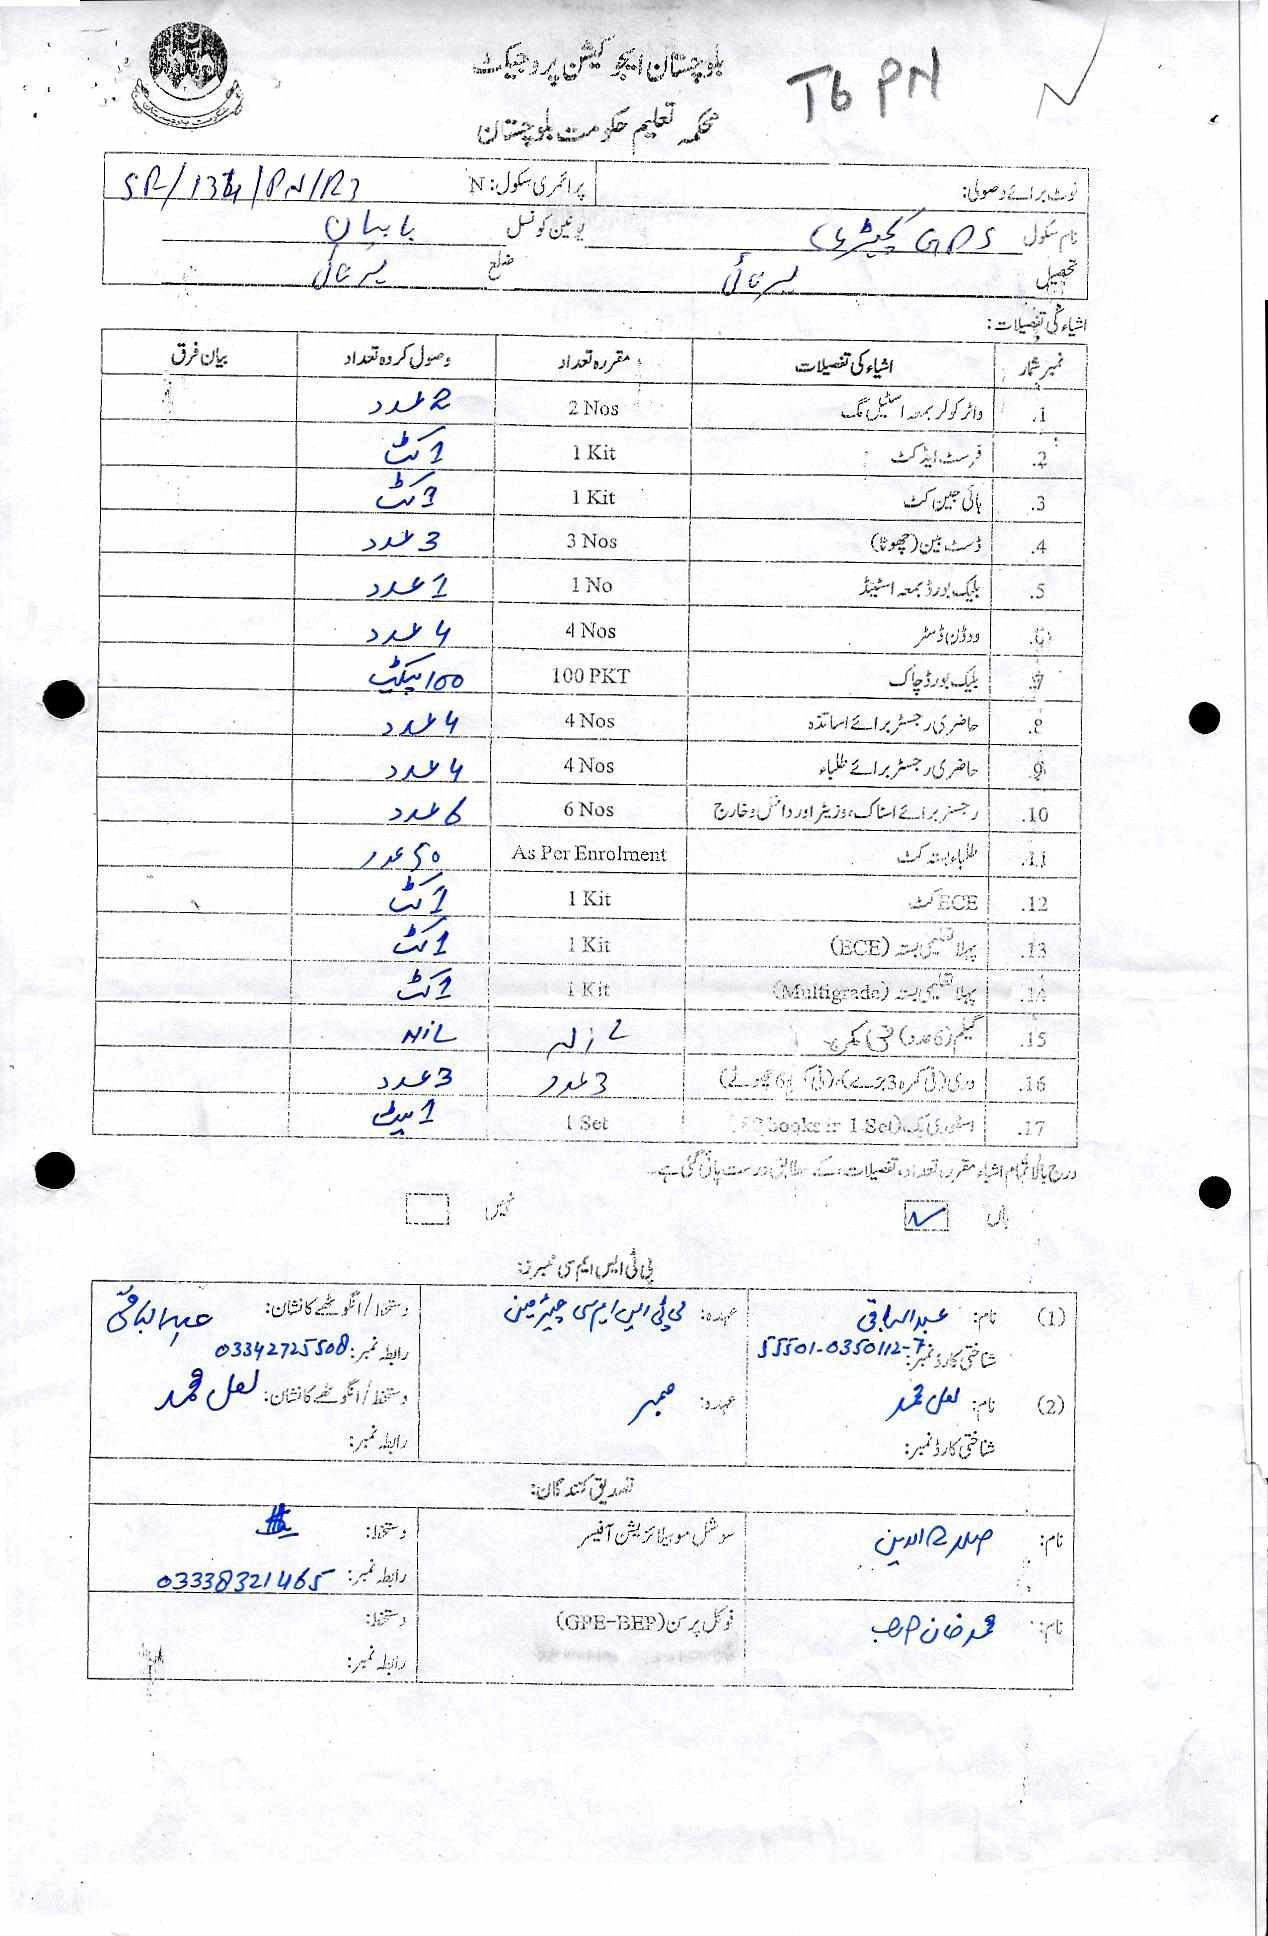 بلوچستان ایجوکیشن پروجیکٹ
T6 PN
محکمہ تعلیم حکومت بلوچستان
نوٹ برائے وصولی: پرائمری سکول: N
نام سکول GPS یونین کونسل
تحصیل ضلع
اشیاء کی تفصیلات:
نمبر شمار اشیاء کی تفصیلات مقررہ تعداد وصول کردہ تعداد بیان فرق
1. واٹر کولر بمعہ اسٹیل مگ 2 Nos 2 عدد
2. فرسٹ ایڈ کٹ 1 Kit 1 کٹ
3. ہائی جین کٹ 1 Kit 1 کٹ
4. ڈسٹ بین (چھوٹا) 3 Nos 3 عدد
5. بلیک بورڈ بمعہ اسٹینڈ 1 No 1 عدد
6. ووڈن ڈسٹر 4 Nos 4 عدد
7. بلیک بورڈ چاک 100 PKT 100 پیکٹ
8. حاضری رجسٹر برائے اساتذہ 4 Nos 4 عدد
9. حاضری رجسٹر برائے طلباء 4 Nos 4 عدد
10. رجسٹر برائے اسٹاک، وزیٹر اور داخل و خارج 6 Nos 6 عدد
11. طلباء بستہ کٹ As Per Enrolment 50 عدد
12. ECE کٹ 1 Kit 1 کٹ
13. پہلا تعلیمی بستہ (ECE) 1 Kit 1 کٹ
14. پہلا تعلیمی بستہ (Multigrade) 1 Kit 1 کٹ
15. (6 عدد) NiL
16. 3 عدد 3 عدد
17. 1 Set 1 سیٹ
درج بالا تمام اشیاء مقررہ تعداد، تفصیلات کے مطابق درست پائی گئی ہے۔
ہاں نہیں
پی ٹی ایس ایم سی ممبرز:
(1) نام: عبدالباقی عہدہ: پی ٹی ایس ایم سی چیئرمین دستخط/انگوٹھے کا نشان: عبدالباقی
شناختی کارڈ نمبر: 55501-0350112-7 رابطہ نمبر: 03342725508
(2) نام: لعل محمد عہدہ: ممبر دستخط/انگوٹھے کا نشان: لعل محمد
شناختی کارڈ نمبر: رابطہ نمبر:
تصدیق کنندگان:
نام: صدرالدین سوشل موبیلائزیشن آفیسر دستخط:
رابطہ نمبر: 03338321465
نام: محمد خان فوکل پرسن (GPE-BEP) دستخط:
رابطہ نمبر: